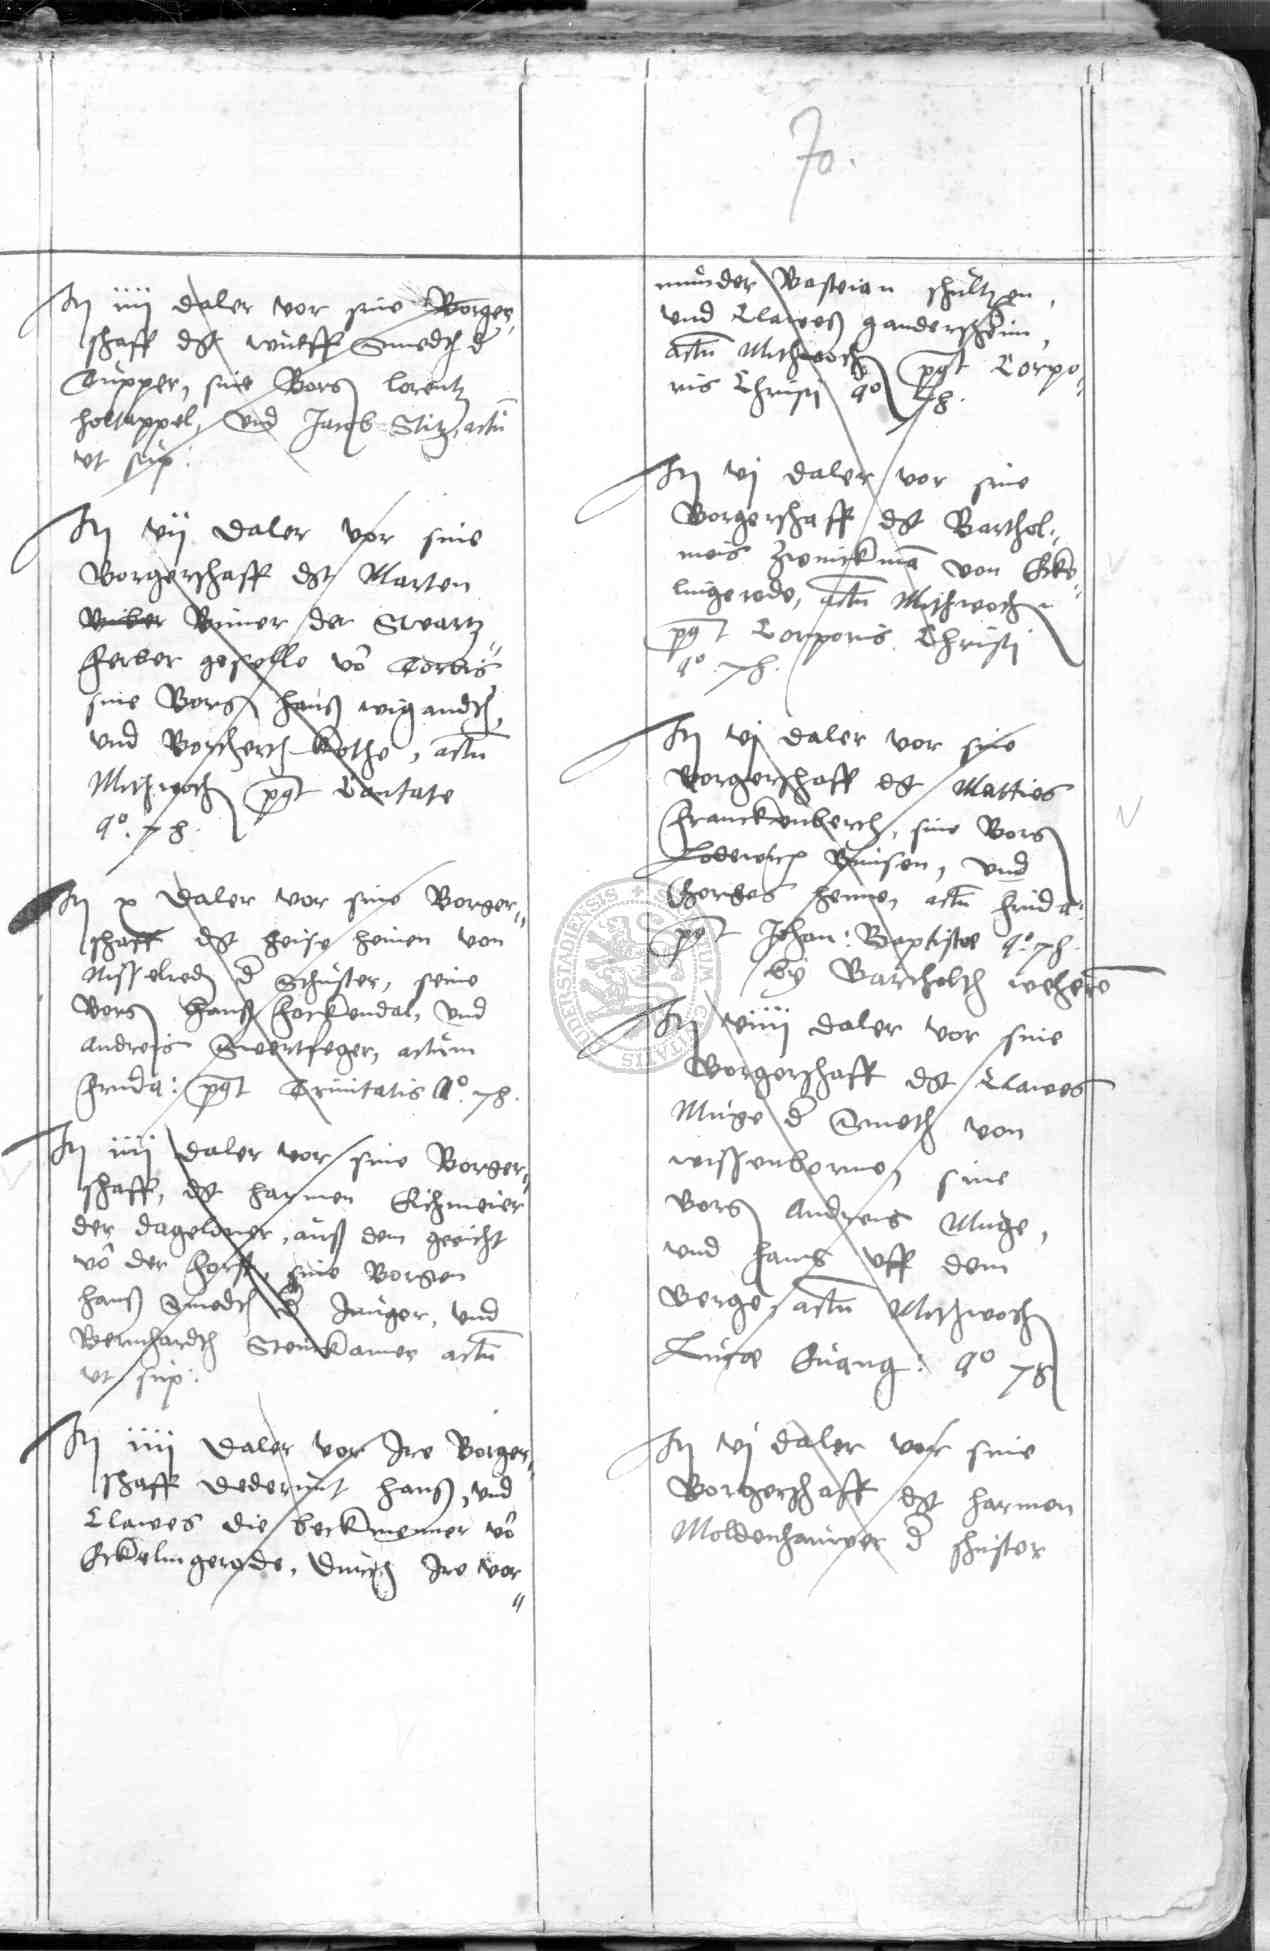 70.
It iiij daler vor sine Borger„
schafft dt Wulff Smedt d
Cüpper, sine Bors Lorentz
holtappel, vnd Jacob Stitz, actū
vt sup:
It vij daler vor sine
Borgerschafft dt Marten
Rimer der Swartz„
ferber geselle vō Corbis
sine Bors hanß wigandt,
vnd Borchert Kothe, actū
Mithwoch pꝰt Cantate
aō. 78.
It x daler vor sine Borger„
schafft dt Heise heinen von
Nisselredt d Schuster, seine
Bors hanß Hockendal, vnd
Andreis Swertfeger, actum
frida: pꝰt Trinitatis Aō. 78.
It iiij daler vor sine Borger„
schafft, dt harmen Eichmeier
der dageloner, auß dem gericht
vō der Horst, sine Borgen
hanß Smedt d Junger, vnd
Bernhardt Steinkamer actū
vt sup:
It iiij daler vor Ire Borger„
schafft dederunt hanß, vnd
Clawes die beckmenner vō
Eckelingerode, durch Ire vor„
munder Bastian schultzen,
vnd Clawes gandershem,
actū Mithwoch pꝰt Corpo„
ris Christi aō 78.
It vj daler vor sine
Borgerschafft dt Barthol„
meis Zwenckmā von Ecke„
lingerode, actū Mithwoch
pꝰt Corporis Christi
aō. 78.
It vj daler vor sine
borgerschafft dt Matties
Franckenberch, sine Bors
Lodewich Bunsen, vnd
Gorges henne, actū frida:
pꝰt Johan: Baptistae aō. 78.
by Barcholth weheren
It viiij daler vor sine
Borgerschafft dt Clawes
Muge d Smeth von
wissenborne, sine
bors Andreis Muge,
vnd hans vff dem
Berge, actū Mithwoch
Lucae Euang: aō 78
It vj daler vor sine
Borgerschafft dt harmen
Moldenhauwer d schuster
SIGILLUM CIVITATIS DUDERSTADIENSIS